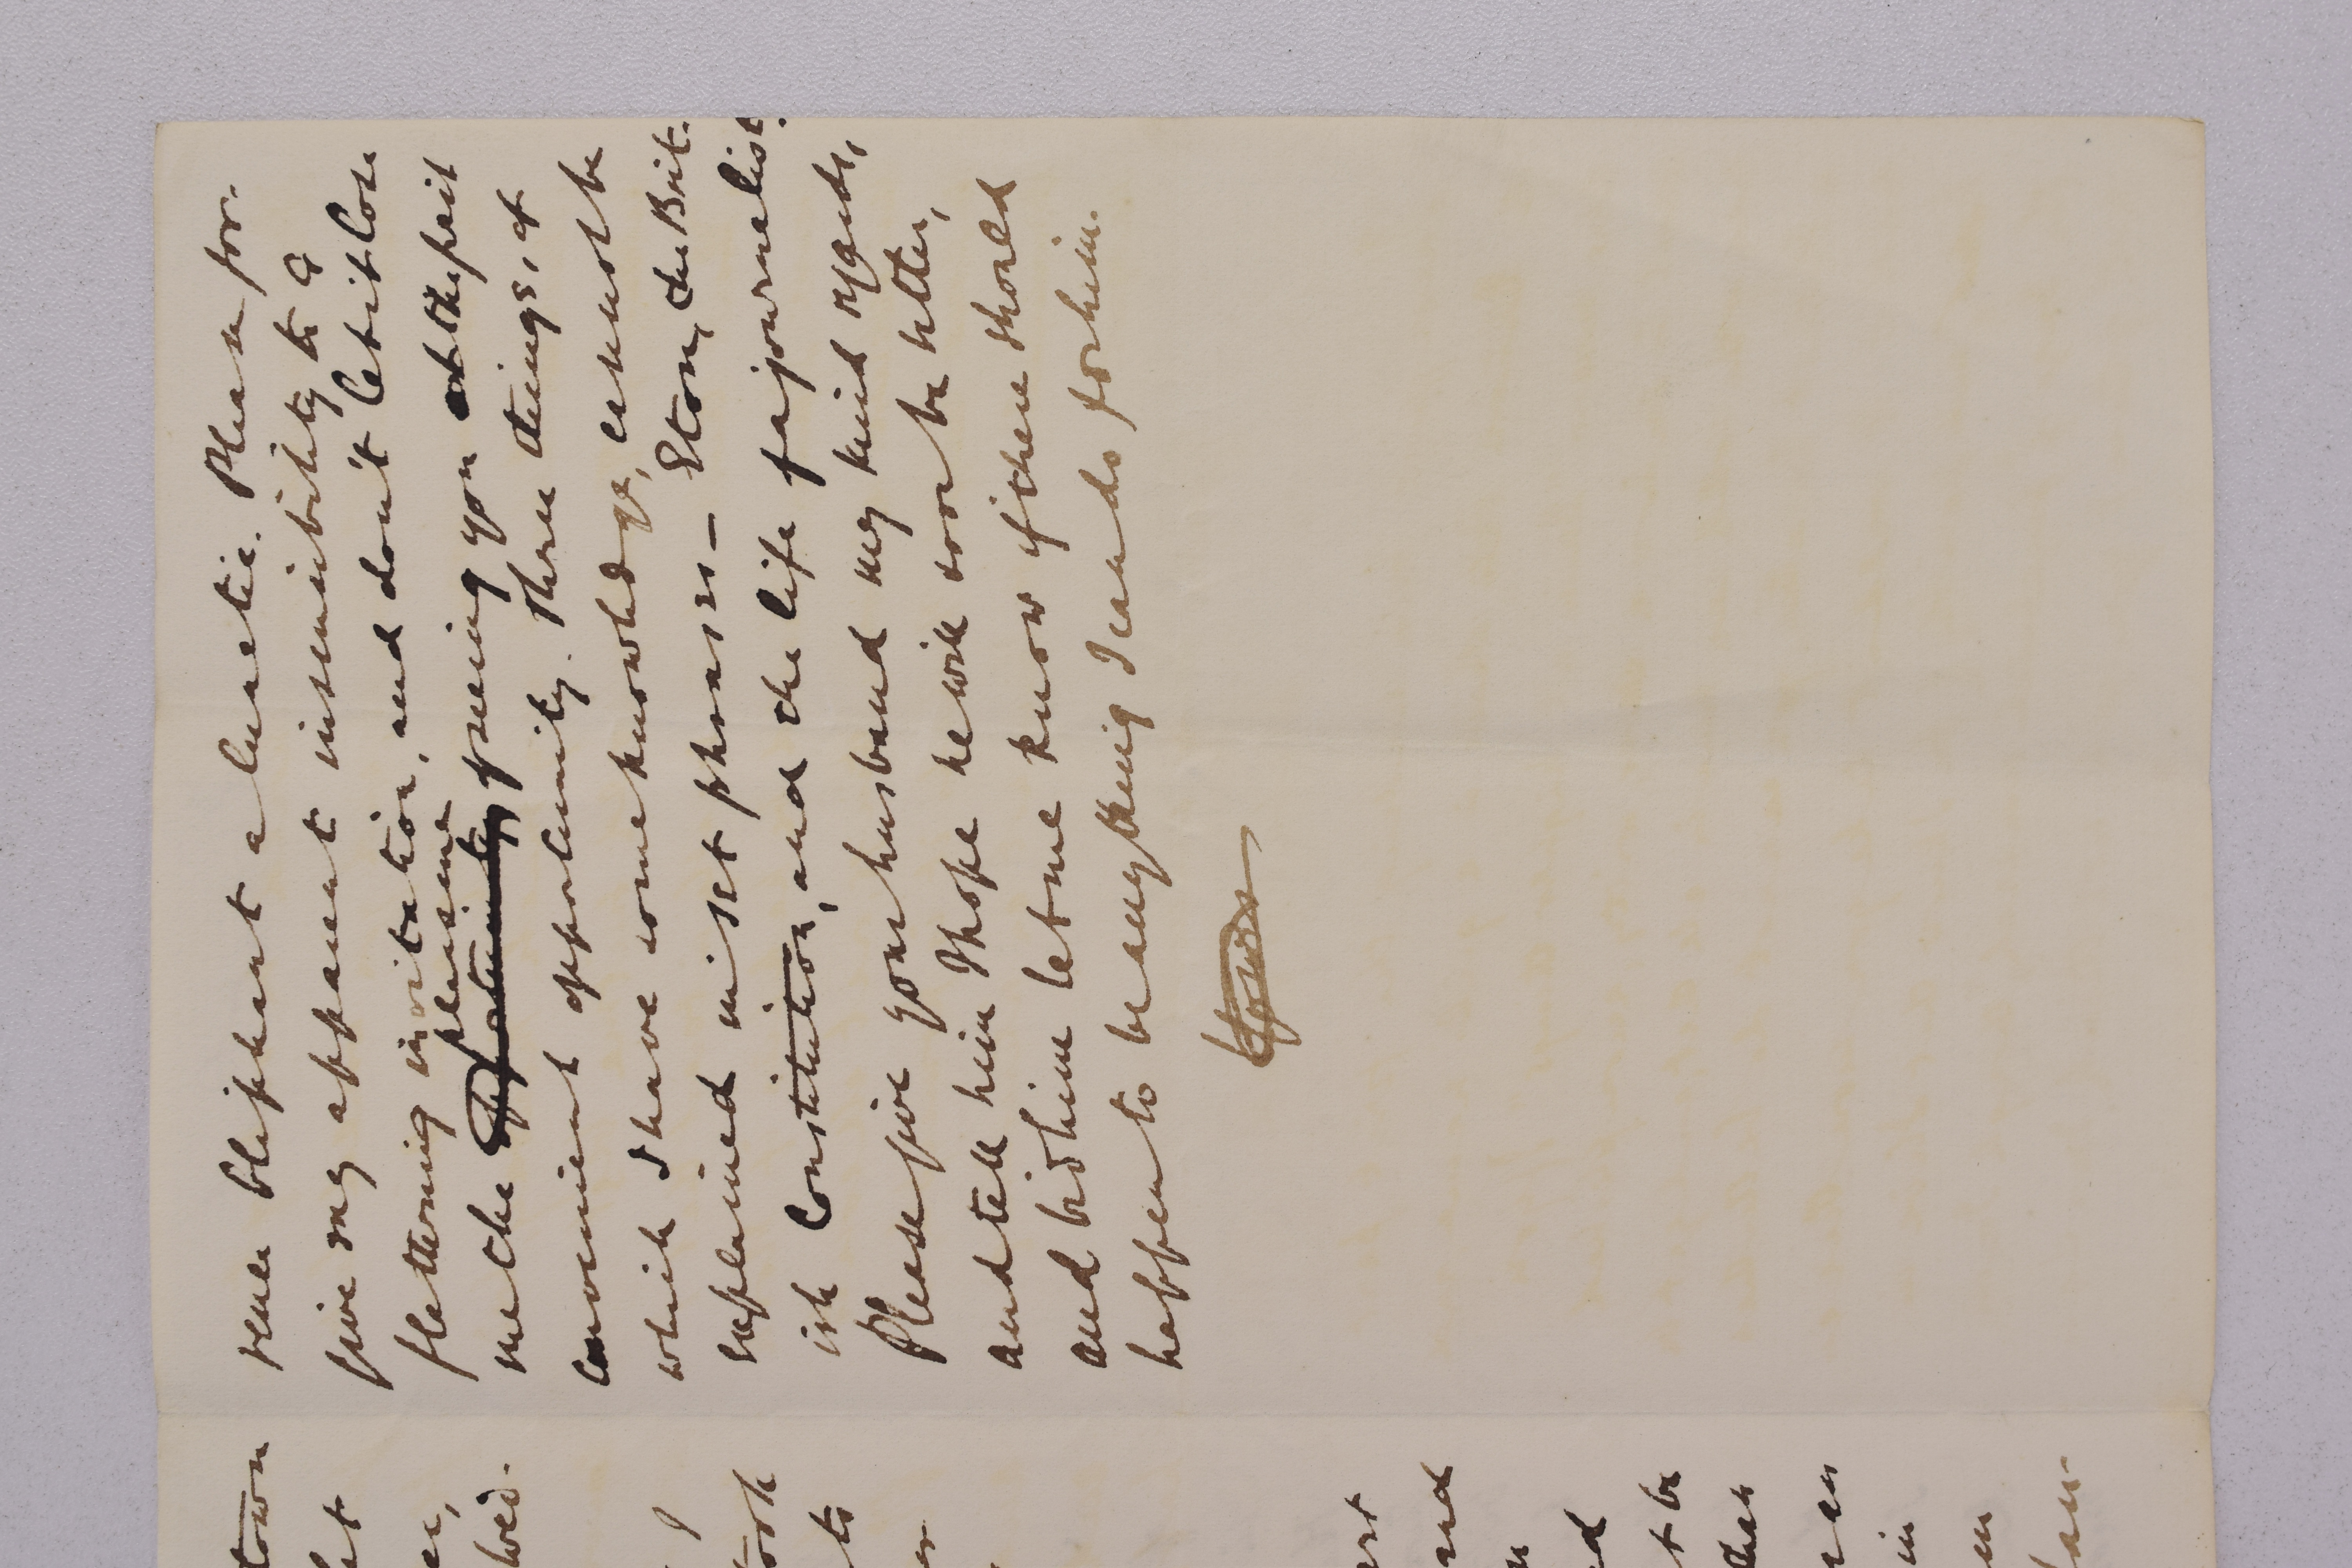 sene elephant a lunatic. Please for-
give my apparent insensibility to a
flattering invitation, and don't let it lose
pleasure
me the opportunity of seeing you at the first
convenient opportunity. Three things, of
which I have some knowledge, cannot be
explained in set phrases – Eton, the Brit-
ish Constitution, and the life of a journalist.
Please give your husband my kind regards,
and tell him I hope he will soon be better,
and bid him let me know if there should
happen to be anything I can do for him.
town
to
and
t be
than
in